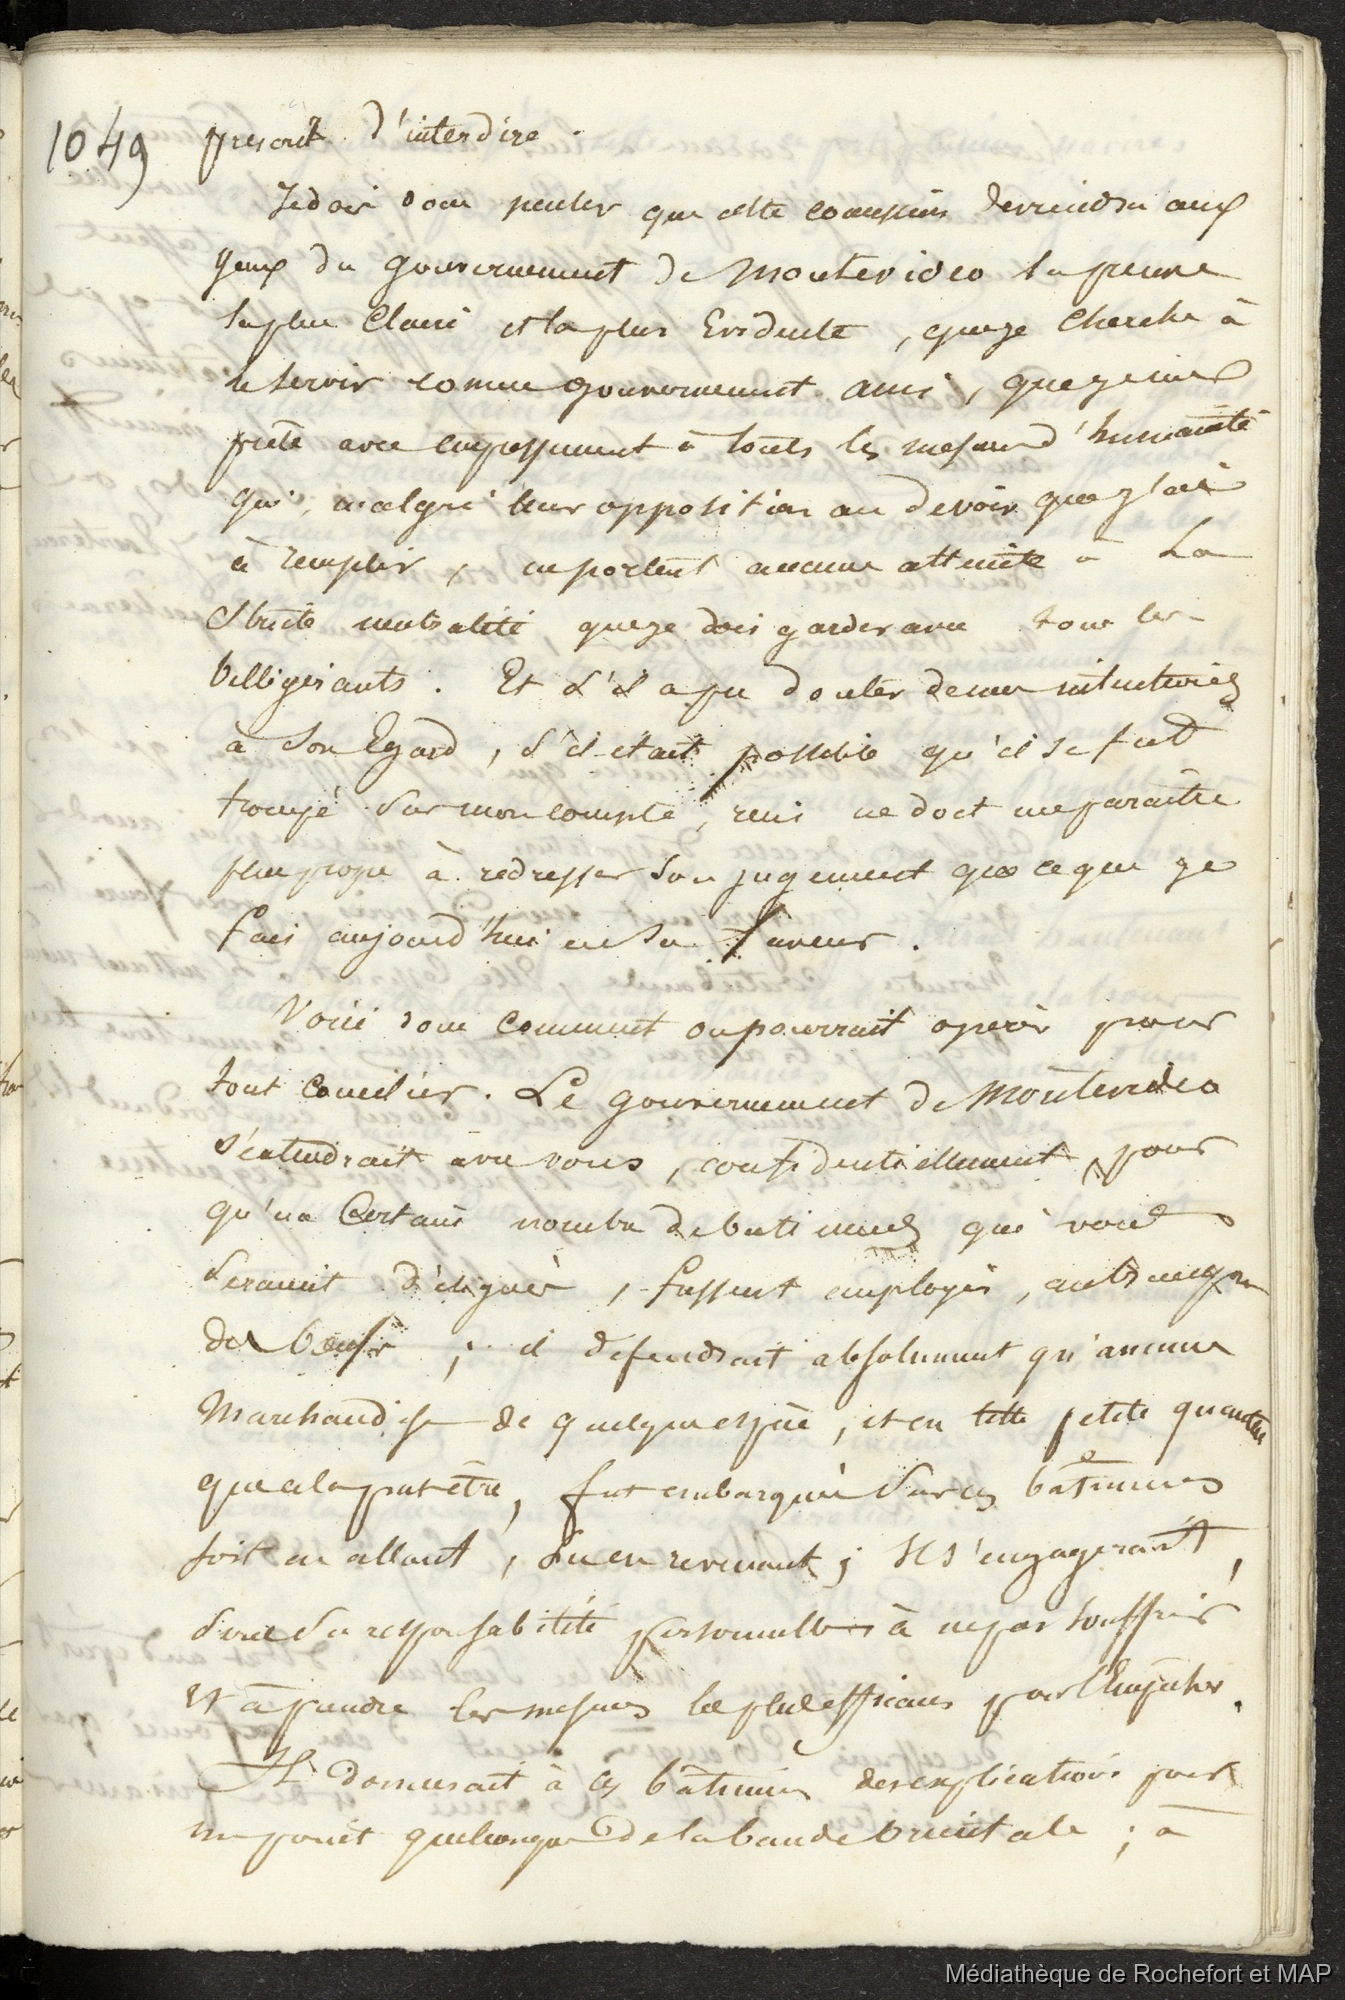 1049 prescrit d'interdire.
Je dois donc penser que cette concession deviendra aux
yeux du gouvernement de Montevideo la preuve
la plus claire et la plus Evidente, que je cherche à
le servir comme gouvernement ami, que je me
prête avec empressement à touts les mesures d'humanité
qui, malgré leur opposition au devoir que j'ai
à remplir, ne portent aucune atteinte à La
Stricte neutralité que je dois garder avec tous les
belligérants. Et s'il a pu douter de mes intentions
à Son Egard, s'il était possible qu'il se fut
trompé Sur mon compte, rien ne doit me paraître
plus propre à redresser Son jugement que ce que je
fais aujourd'hui en Sa faveur.
Voici donc comment on pourrait opérer pour
tout concilier. Le gouvernement de Montevideo
S'entendrait avec vous, confidentiellement, pour
qu'un Certain nombre de batiments qui vous
Seraient désignés, fussent employés, au transport
des bœufs; il défendrait absolument qu'aucune
Marchandise de quelque espèce, et en telle petite quantité
que cela put être, fut embarquée Sur ces bâtiments
soit en allant, Su en revenant; Il s'engagerait,
Sous Sa responsabilité personnelle à ne pas Souffrir
Et à prendre les mesures les plus efficaces pour l'Empêcher.
Il donnerait à ces bâtiments des explications pour
un point quelconque de la bande orientale; à
Médiathèque de Rochefort et MAP